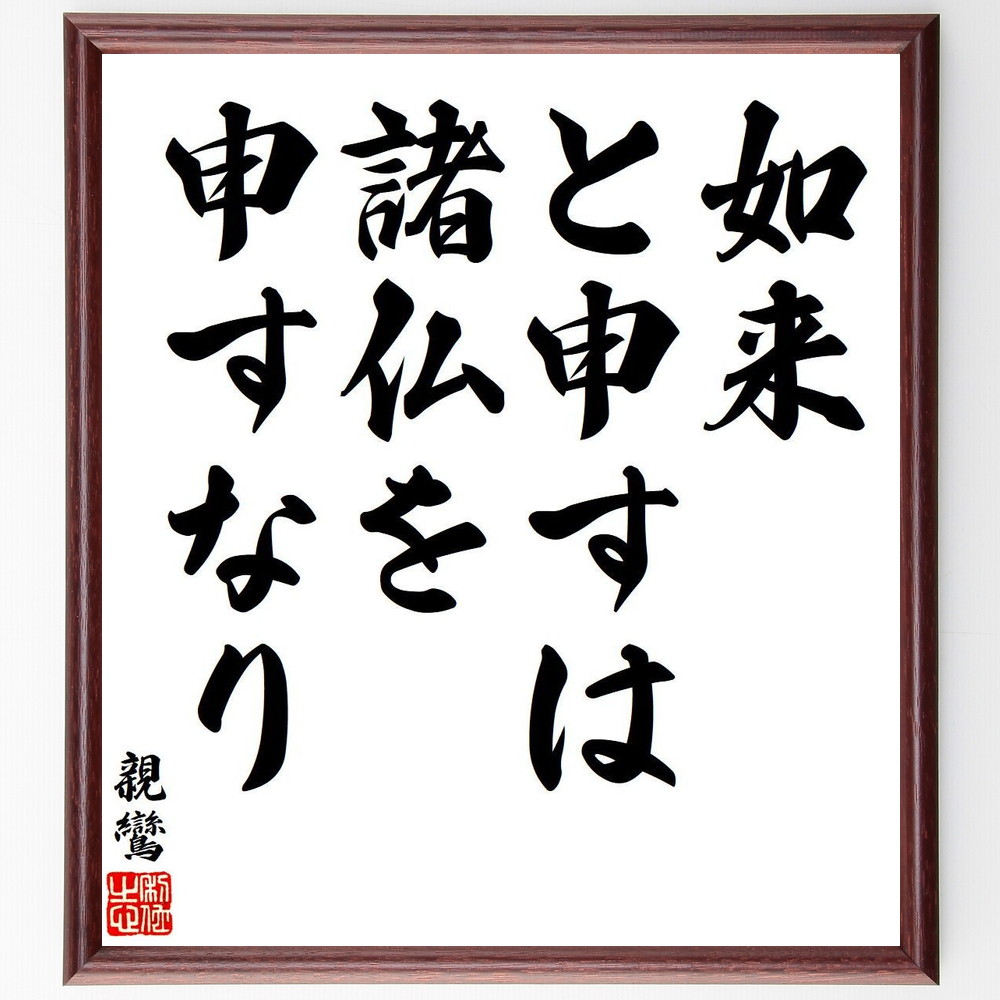 如来
と申すは
諸仏を
申すなり
親鸞